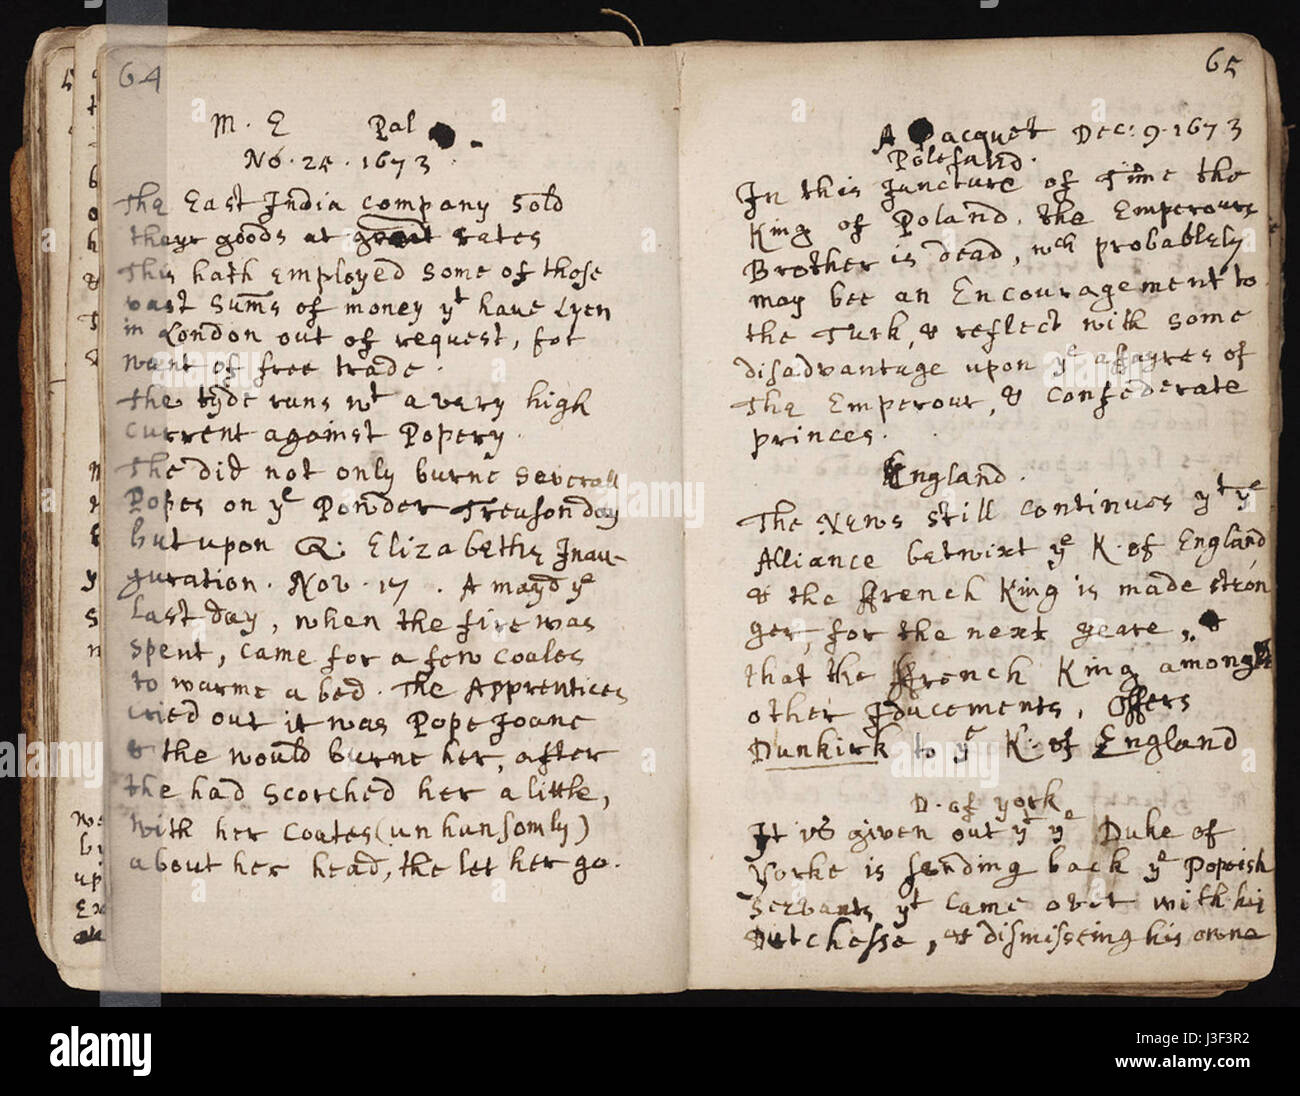 64
M. E Pal
No. 25. 1673.
The East India company sold
theyr goods at great rates
This hath Employed some of those
vast Sums of money yt have Lyen
in London out of request, for
want of free trade.
The tyde runs wt a very high
current against Popery.
The did not only burne severall
Popes on ye Powder Treason day
but upon Q. Elizabeths Inau-
guration. Nov. 17. A mayd ye
last day, when the fire was
spent, came for a few coales
to warme a bed. The Apprentices
cried out it was Pope Joane
& the would burne her, after
the had scorched her a little,
with her Coates (unhansomly)
about her head, the let her go.
65
A Pacquet Dec: 9. 1673
Poleland.
In this Juncture of Time the
King of Poland. the Emperours
Brother is dead, wch probablely
may bee an Encouragement to
the Turk, & reflect with some
disadvantage upon ye affayres of
The Emperour, & Confederate
princes.
England.
The News still continues yt ye
Alliance betwixt ye K. of England,
& the ffrench King is made stron
ger, for the next yeare, &
that the ffrench King amongst
other Iducements, Offers
Dunkirk to ye K. of England
D. of york
It is given out yt ye Duke of
Yorke is sending back ye Popish
Servants yt came over with his
Dutchesse, & dismisseing his owne
alamy
alamy stock photo
J3F3R2
www.alamy.com